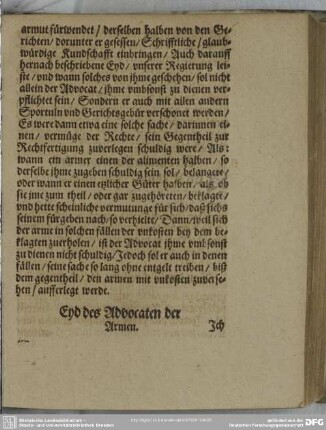 armut fürwendet / derselben halben von den Ge-
richten / dorunter er gesessen / Schrifftliche / glaub-
würdige Kundschafft einbringen / Auch darauff
hernach beschriebene Eyd / unserer Regierung lei-
ste / vnd wann solches von ihme geschehen / sol nicht
allein der Advocat / ihme vmbsonst zu dienen ver-
pflichtet sein / Sondern er auch mit allen andern
Sportuln vnd Gerichtsgebür verschonet werden /
Es were dann etwa eine solche sacht / darinnen ei-
nen / vermüge der Rechte / sein Gegentheil zur
Rechtfertigung zuverlegen schuldig were / Als:
wann ein armer einen der alimenten halben / so
derselbe ihme zugeben schuldig sein sol / belangete /
oder wann er einen etzlicher Güter halben / als ob
sie ihme zum theil / oder gar zugehöreten / beklaget /
vnd hette scheinliche vermutunge für sich / daß sichs
seinem fürgeben nach / so verhielte / Dann / weil sich
der arme in solchen fällen der vnkosten bey dem be-
klagten zuerholen / ist der Advocat ihme vmbsonst
zu dienen nicht schuldig / Jedoch sol er auch in denen
fällen / seine sache so lang ohne entgelt treiben / biß
dem gegentheil / den armen mit vnkosten zuverse-
hen / aufferlegt werde.
Eyd des Advocaten der
Armen.
Jch